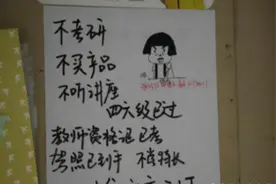 不考研
不买产品
不听讲座
四六级已过
教师资格证已考
驾照已到手 不考特长